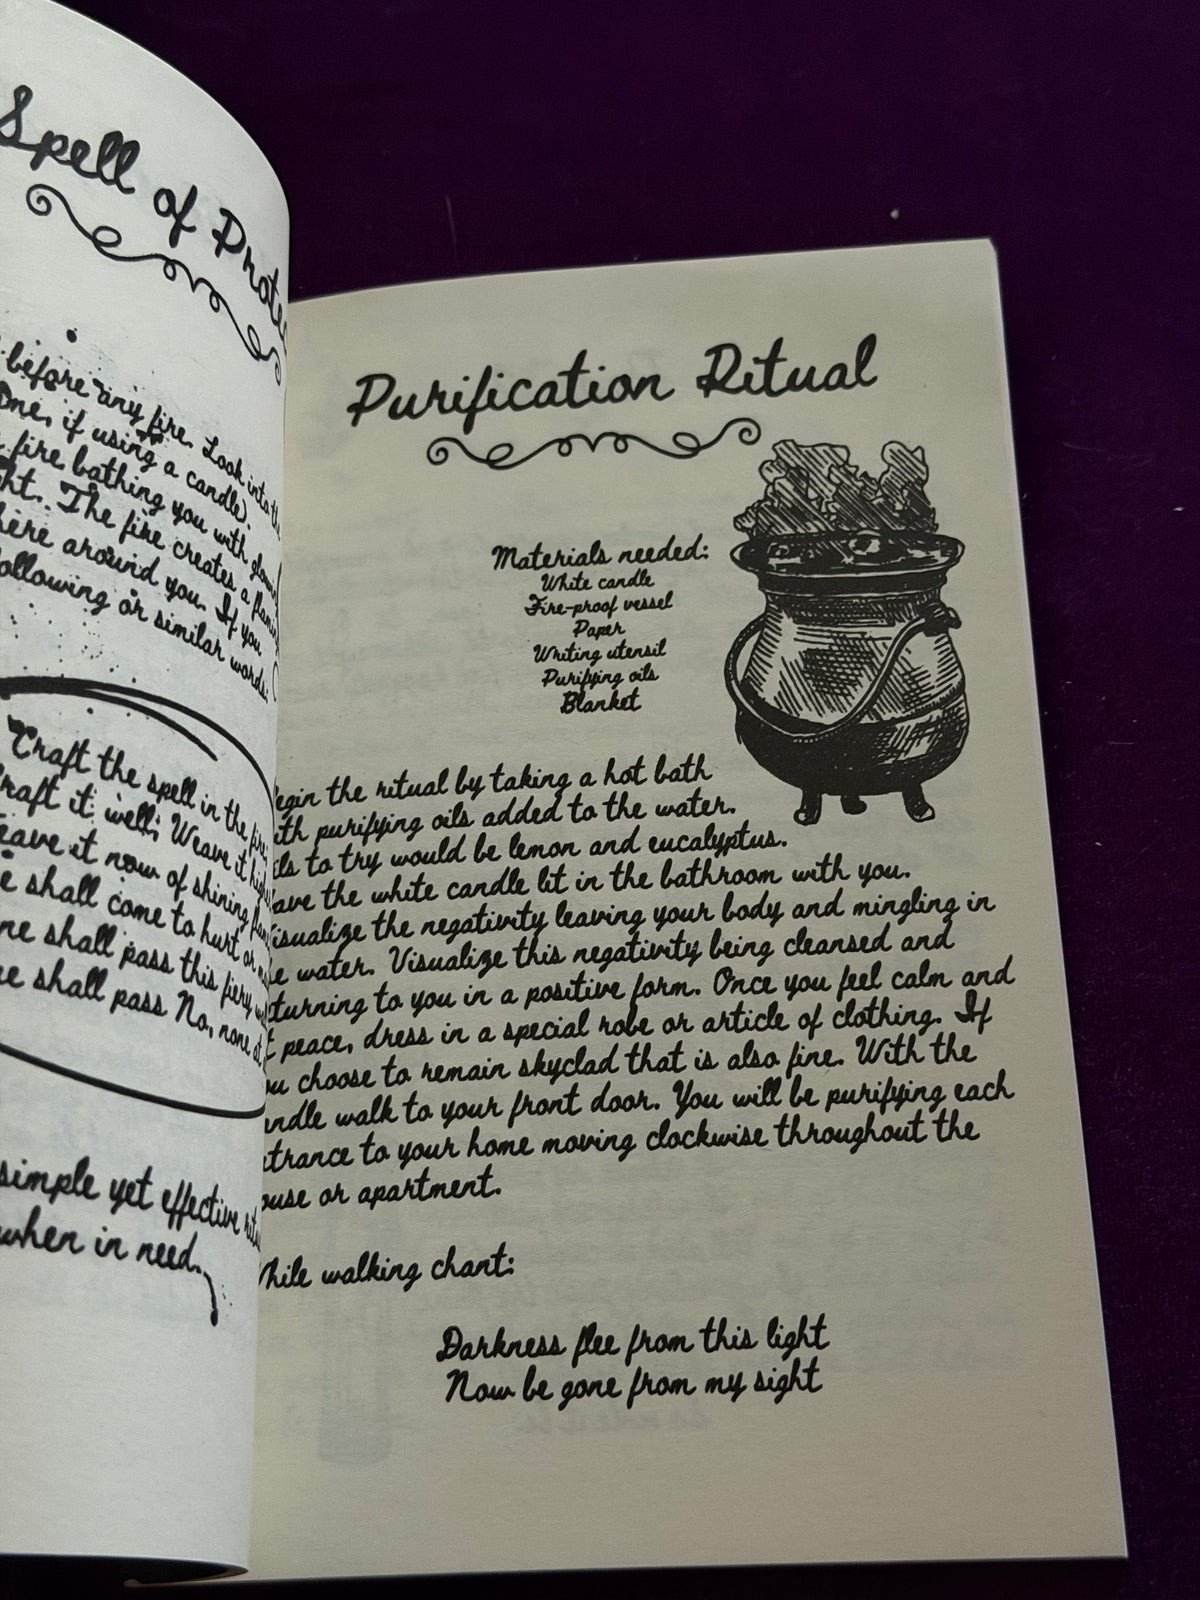 Spell of
before any fire. Look into the
One, if using a candle).
fire bathing you with glowing
The fire creates a flaming
around you. If you
following or similar words:
Craft the spell in the fire,
Craft it well; Weave it
Weave it now of shining
shall come to hurt or
shall pass this fiery
shall pass No, none
simple yet effective
when in need.
Purification Ritual
Materials needed:
White candle
Fire-proof vessel
Paper
Writing utensil
Purifying oils
Blanket
egin the ritual by taking a hot bath
ith purifying oils added to the water.
ils to try would be lemon and eucalyptus.
ave the white candle lit in the bathroom with you.
isualize the negativity leaving your body and mingling in
e water. Visualize this negativity being cleansed and
turning to you in a positive form. Once you feel calm and
t peace, dress in a special robe or article of clothing. If
ou choose to remain skyclad that is also fine. With the
andle walk to your front door. You will be purifying each
ntrance to your home moving clockwise throughout the
ouse or apartment.
hile walking chant:
Darkness flee from this light
Now be gone from my sight